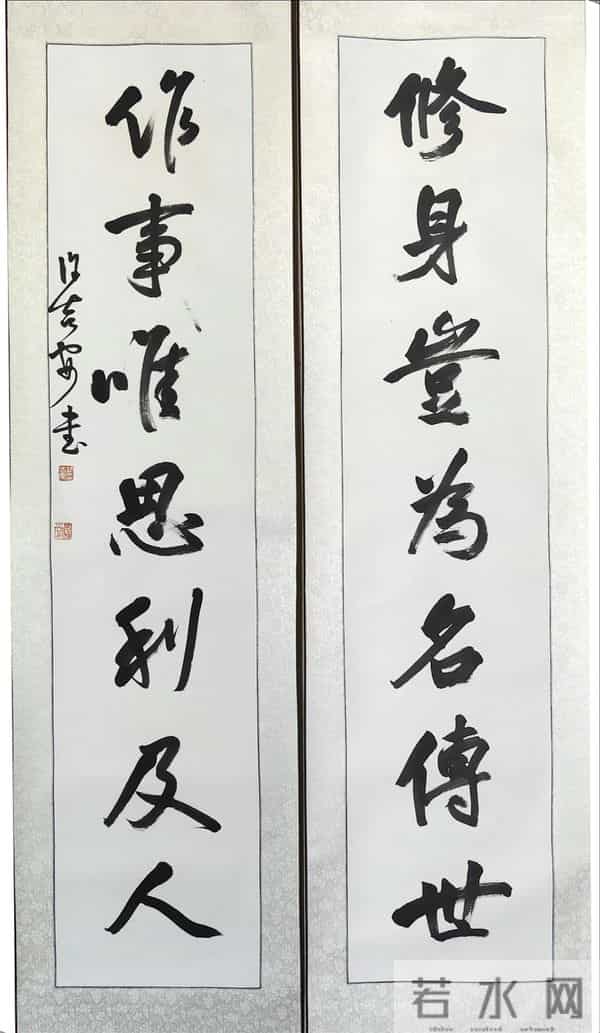 修身豈為名傳世
作事唯思利及人
若水网